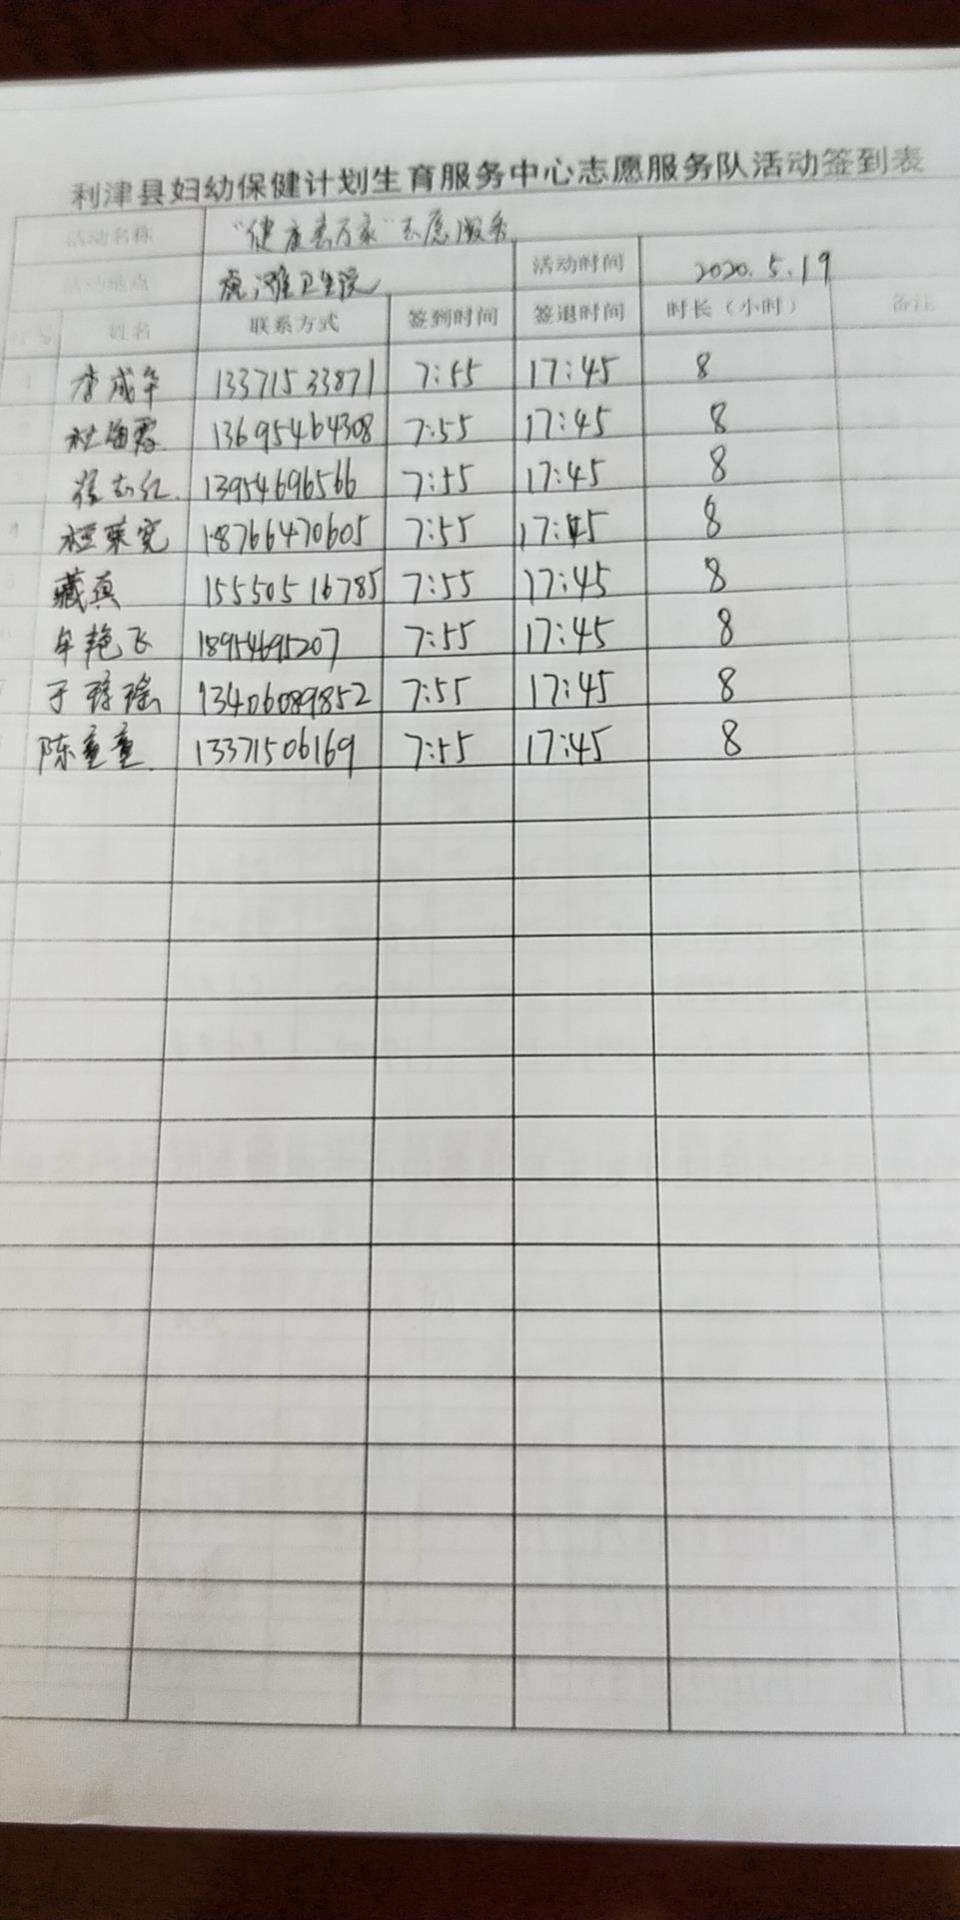 利津县妇幼保健计划生育服务中心志愿服务队活动签到表
活动名称 "健康素万家"志愿服务
活动地点 虎滩卫生院 活动时间 2020.5.19
序号 姓名 联系方式 签到时间 签退时间 时长（小时） 备注
1 李成华 13371533871 7:55 17:45 8
杜海霞 13695464308 7:55 17:45 8
志红 13954696566 7:55 17:45 8
4 18766470605 7:55 17:45 8
5 藏真 15550516785 7:55 17:45 8
6 牟艳飞 18954695207 7:55 17:45 8
7 于 瑶 13406089852 7:55 17:45 8
陈童童 13371506169 7:55 17:45 8